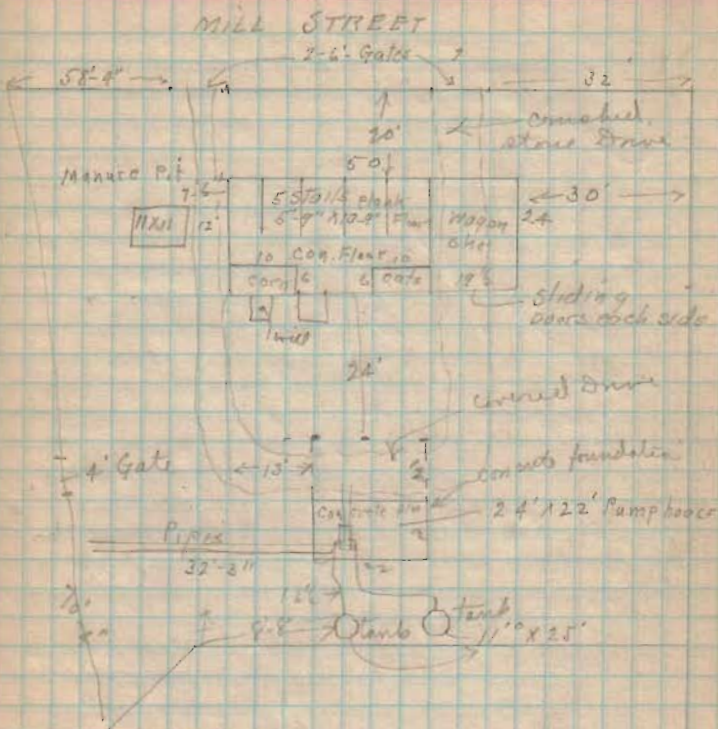 MILL STREET
58'-4"
2-6'-Gates
32'
20'
crushed
stone Drive
50
Manure Pit
7-6
11X11
12'
5 Stalls Plank
5'-9" X 10'-9" Floor
Wagon
Shed
30'
24
10 Con. Floor 10
corn 6
6 oats
19'6
Sliding
Doors each side
mill
24'
covered Drive
4' Gate
13'
12'
concrete foundation
concrete
24' X 22' Pumphouse
Pipes
32'-3"
22
8'-8"
tank
tank
11'0 X 25'